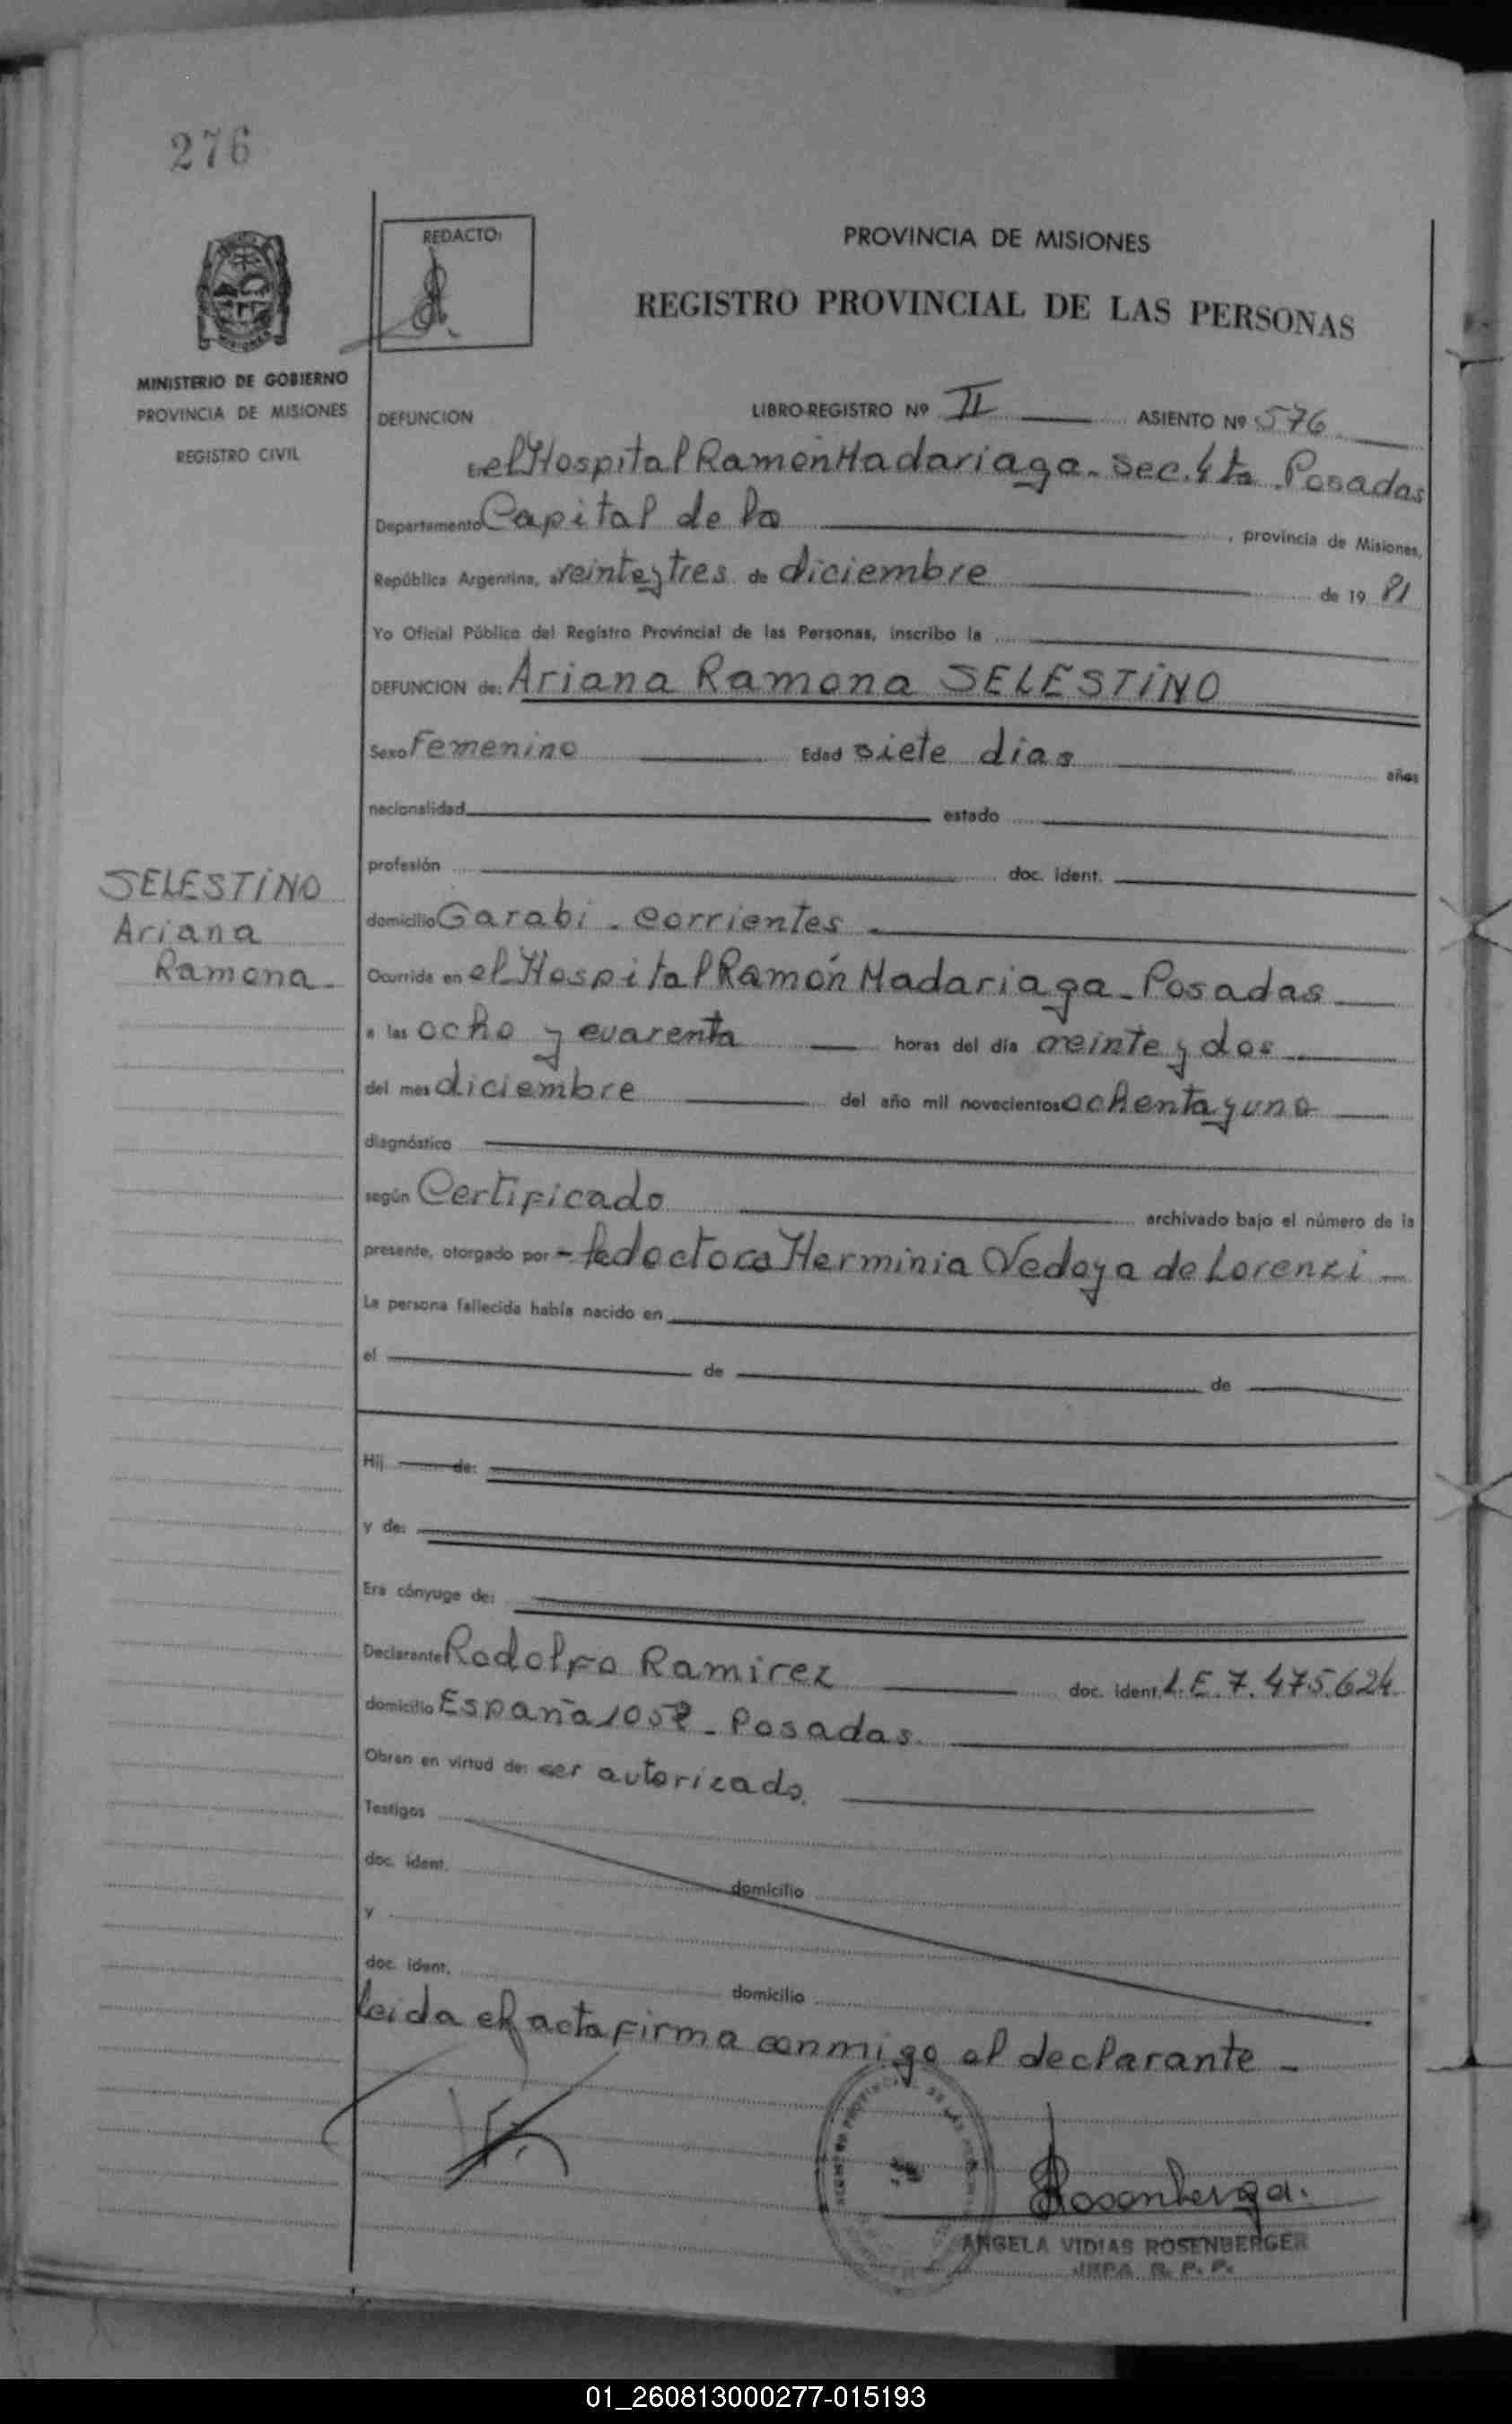 276
REDACTO:
PROVINCIA DE MISIONES
REGISTRO PROVINCIAL DE LAS PERSONAS
MINISTERIO DE GOBIERNO
PROVINCIA DE MISIONES
REGISTRO CIVIL
DEFUNCION LIBRO-REGISTRO Nº II ASIENTO Nº 576
el Hospital Ramón Madariaga - Sec. 4ta Posadas
Departamento Capital de la , provincia de Misiones,
República Argentina, a veinte y tres de diciembre de 19 81
Yo Oficial Público del Registro Provincial de las Personas, inscribo la
DEFUNCION de: Ariana Ramona SELESTINO
Sexo Femenino Edad siete dias años
nacionalidad estado
profesión doc. ident.
SELESTINO
Ariana
Ramona -
domicilio Garabi - Corrientes
Ocurrida en el Hospital Ramón Madariaga - Posadas
a las ocho y cuarenta horas del día veinte y dos
del mes diciembre del año mil novecientos ochenta y uno
diagnóstico
según Certificado archivado bajo el número de la
presente, otorgado por - la doctora Herminia Vedoya de Lorenzi -
La persona fallecida había nacido en
el de de
Hij de:
y de:
Era cónyuge de:
Declarante Rodolfo Ramirez doc. ident. L.E. 7.475.624
domicilio España 1052 - Posadas.
Obran en virtud de: ser autorizado.
Testigos
doc. ident. domicilio
y
doc. ident. domicilio
leida el acta firma conmigo el declarante -
Rosenberger.
ANGELA VIDIAS ROSENBERGER
JEFA R. P. P.
01_260813000277-015193